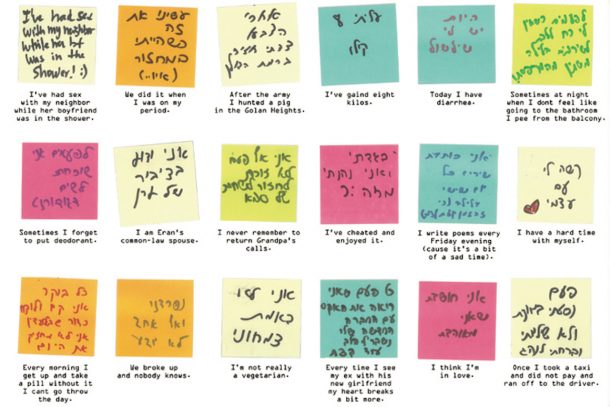 I've had sex
with my neighbor
while her bf
was in the
shower! :)
I've had sex
with my neighbor
while her boyfriend
was in the shower.
עשינו את
זה
כשהייתי
במחזור
(איו..)
We did it when
I was on my
period.
אחרי
הצבא
צדתי חזיר
ברמת הגולן
After the army
I hunted a pig
in the Golan Heights.
עליתי 8
קילו
I've gaind eight
kilos.
היום
יש לי
שלשול
Today I have
diarrhea.
לפעמים כשאין
לי כח ללכת
לשירותים בלילה
מהמרפסת
Sometimes at night
when I dont feel like
going to the bathroom
I pee from the balcony.
לפעמים אני
שוכחת
לשים
דאודורנט
Sometimes I forget
to put deodorant.
אני ידוע
בציבור
של ערן
I am Eran's
common-law spouse.
אני אף פעם
לא זוכרת
לחזור לשיחות
של סבא
I never remember to
return Grandpa's
calls.
בגדתי
ואני נהנתי
מזה :(
I've cheated and
enjoyed it.
אני כותבת
שירים כל
יום שישי
בלילה
I write poems every
Friday evening
(cause it's a bit
of a sad time).
קשה לי
עם
עצמי
I have a hard time
with myself.
כל בוקר
אני קם ולוקח
כדור שבלעדיו
אני לא מחזיק
את היום
Every morning I
get up and take
a pill without it
I cant go throw
the day.
נפרדנו
ואף אחד
לא יודע
We broke up
and nobody knows.
אני לא
באמת
צמחוני
I'm not really
a vegetarian.
כל פעם שאני
רואה את האקס
עם החברה
החדשה שלו
נשבר לי הלב
עוד קצת
Every time I see
my ex with his
new girlfriend
my heart breaks
a bit more.
אני חושבת
שאני
מאוהבת
I think I'm
in love.
פעם
נסעתי במונית
ולא שילמתי
וברחתי לנהג
Once I took a taxi
and did not pay and
ran off to the driver.